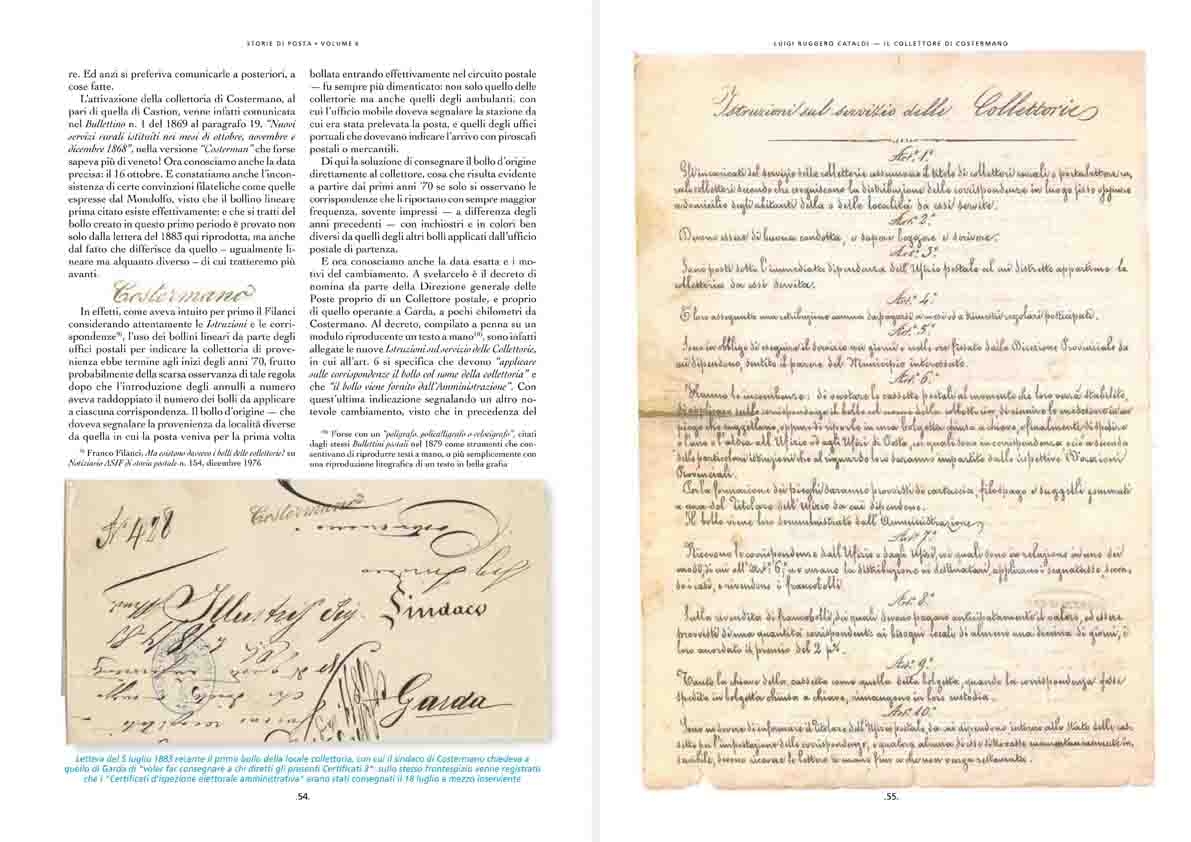 STORIE DI POSTA • VOLUME 6
re. Ed anzi si preferiva comunicarle a posteriori, a
cose fatte.
L'attivazione della collettoria di Costermano, al
pari di quella di Castion, venne infatti comunicata
nel Bullettino n. 1 del 1869 al paragrafo 19, "Nuovi
servizi rurali istituiti nei mesi di ottobre, novembre e
dicembre 1868", nella versione "Costerman" che forse
sapeva più di veneto! Ora conosciamo anche la data
precisa: il 16 ottobre. E constatiamo anche l'incon-
sistenza di certe convinzioni filateliche come quelle
espresse dal Mondolfo, visto che il bollino lineare
prima citato esiste effettivamente: e che si tratti del
bollo creato in questo primo periodo è provato non
solo dalla lettera del 1883 qui riprodotta, ma anche
dal fatto che differisce da quello – ugualmente li-
neare ma alquanto diverso – di cui tratteremo più
avanti.
Costermano
In effetti, come aveva intuito per primo il Filanci
considerando attentamente le Istruzioni e le corri-
spondenze⁹⁾, l'uso dei bollini lineari da parte degli
uffici postali per indicare la collettoria di prove-
nienza ebbe termine agli inizi degli anni '70, frutto
probabilmente della scarsa osservanza di tale regola
dopo che l'introduzione degli annulli a numero
aveva raddoppiato il numero dei bolli da applicare
a ciascuna corrispondenza. Il bollo d'origine — che
doveva segnalare la provenienza da località diverse
da quella in cui la posta veniva per la prima volta
⁹⁾ Franco Filanci, Ma esistono davvero i bolli delle collettorie? su
Notiziario ASIF di storia postale n. 154, dicembre 1976
bollata entrando effettivamente nel circuito postale
— fu sempre più dimenticato: non solo quello delle
collettorie ma anche quelli degli ambulanti, con
cui l'ufficio mobile doveva segnalare la stazione da
cui era stata prelevata la posta, e quelli degli uffici
portuali che dovevano indicare l'arrivo con piroscafi
postali o mercantili.
Di qui la soluzione di consegnare il bollo d'origine
direttamente al collettore, cosa che risulta evidente
a partire dai primi anni '70 se solo si osservano le
corrispondenze che li riportano con sempre maggior
frequenza, sovente impressi — a differenza degli
anni precedenti — con inchiostri e in colori ben
diversi da quelli degli altri bolli applicati dall'ufficio
postale di partenza.
E ora conosciamo anche la data esatta e i mo-
tivi del cambiamento. A svelarcelo è il decreto di
nomina da parte della Direzione generale delle
Poste proprio di un Collettore postale, e proprio
di quello operante a Garda, a pochi chilometri da
Costermano. Al decreto, compilato a penna su un
modulo riproducente un testo a mano¹⁰⁾, sono infatti
allegate le nuove Istruzioni sul servizio delle Collettorie,
in cui all'art. 6 si specifica che devono "applicare
sulle corrispondenze il bollo col nome della collettoria" e
che "il bollo viene fornito dall'Amministrazione". Con
quest'ultima indicazione segnalando un altro no-
tevole cambiamento, visto che in precedenza del
¹⁰⁾ Forse con un "poligrafo, policalligrafo o velocigrafo", citati
dagli stessi Bullettini postali nel 1879 come strumenti che con-
sentivano di riprodurre testi a mano, o più semplicemente con
una riproduzione litografica di un testo in bella grafia
N° 428
Costermano
Illustriss Sig. Sindaco
Garda
Lettera del 5 luglio 1883 recante il primo bollo della locale collettoria, con cui il sindaco di Costermano chiedeva a
quello di Garda di "voler far consegnare a chi diretti gli presenti Certificati 3": sullo stesso frontespizio venne registrato
che i "Certificati d'ispezione elettorale amministrativa" erano stati consegnati il 18 luglio a mezzo inserviente
.54.
LUIGI RUGGERO CATALDI — IL COLLETTORE DI COSTERMANO
Istruzioni sul servizio delle Collettorie
Art.° 1.°
Gli incaricati del servizio delle collettorie assumono il titolo di collettori rurali o portalettere ru-
rali collettori secondo che eseguiscono la distribuzione delle corrispondenze in luogo fisso oppure
a domicilio degli abitanti della o delle località da essi servite.
Art.° 2.°
Devono essere di buona condotta, e sapere leggere e scrivere.
Art.° 3.°
Sono posti sotto l'immediata dipendenza dell'Ufizio postale al cui distretto appartiene la
collettoria da essi servita.
Art.° 4.°
È loro assegnata una retribuzione annua da pagarsi a mesi od a trimestri regolari posticipati.
Art.° 5.°
Sono in obbligo di eseguire il servizio nei giorni e nelle ore fissate dalla Direzione Provinciale da
cui dipendono, sentito il parere del Municipio interessato.
Art.° 6.°
Hanno le incombenze: di vuotare le cassette postali al momento che loro verrà stabilito,
di applicare sulle corrispondenze il bollo col nome della collettoria, di riunire le medesime in un
piego che suggellano, oppure di riporle in una bolgetta chiusa a chiave, e finalmente di spedire
o l'uno o l'altra all'Ufizio od agli Ufizi di Posta, coi quali sono in corrispondenza e ciò a seconda
delle particolari istruzioni che al riguardo loro saranno impartite dalle rispettive Direzioni
Provinciali.
Per la formazione dei pieghi saranno provvisti di cartaccia, filo spago e suggelli gommati
a cura del Titolare dell'Ufizio da cui dipendono.
Il bollo viene loro somministrato dall'Amministrazione.
Art.° 7.°
Ricevono le corrispondenze dall'Ufizio o dagli Ufizi, coi quali sono in relazione in uno dei
modi di cui all'Art.° 6.°, ne curano la distribuzione ai destinatari, applicano i segnatasse, secon-
do i casi, e rivendono i francobolli.
Art.° 8.°
Sulla rivendita di francobolli, dei quali devono pagare anticipatamente il valore, ed essere
provvisti di una quantità corrispondente ai bisogni locali di almeno una decina di giorni, è
loro accordato il premio del 2 p%.
Art.° 9.°
Tanto la chiave della cassetta come quella della bolgetta, quando la corrispondenza fosse
spedita in bolgetta chiusa a chiave, rimangono in loro custodia.
Art.° 10.°
Sono in dovere di informare il Titolare dell'Ufizio postale, da cui dipendono intorno allo stato delle cas-
sette per l'impostazione delle corrispondenze, e qualora alcuna di esse si trovasse momentaneamente in-
servibile, devono ricevere le lettere a mano fino a che non venga restaurata.
.55.